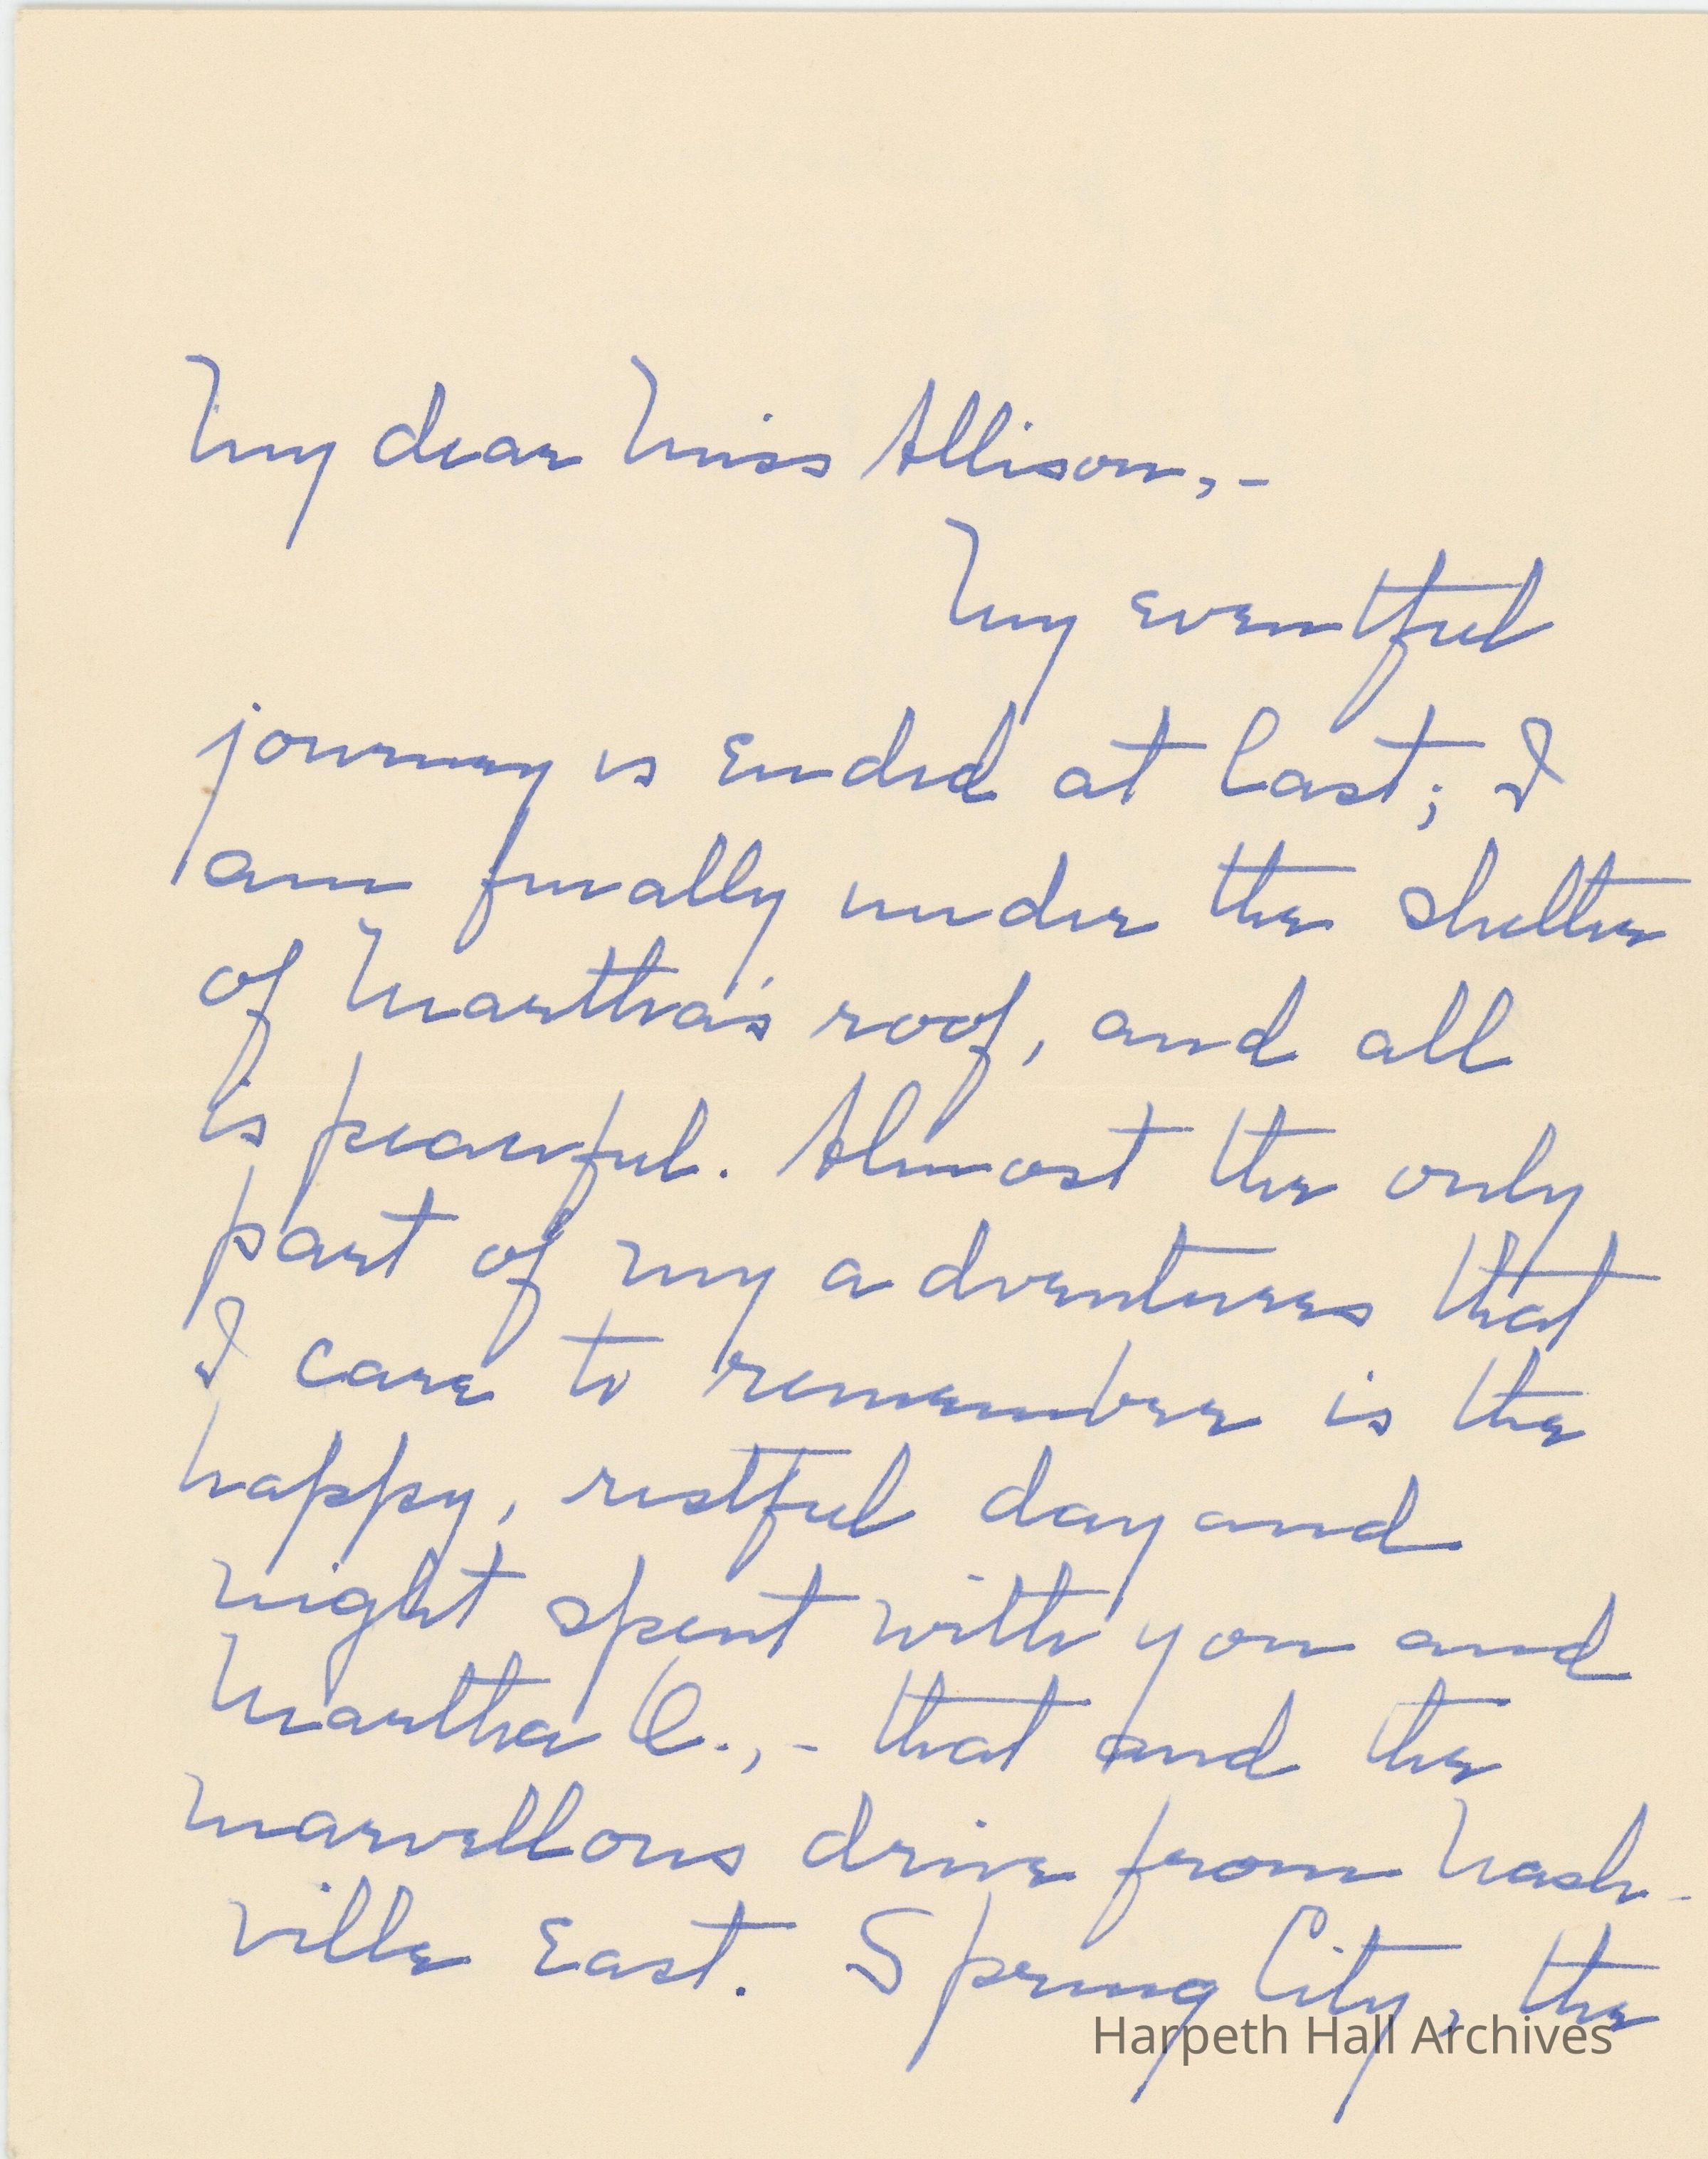 My dear Miss Allison,-
My eventful
journey is ended at last; I
am finally under the shelter
of Martha's roof, and all
is peaceful. Almost the only
part of my adventures that
I care to remember is the
happy, restful day and
night spent with you and
Martha O.,- that and the
marvellous drive from Nash-
ville East. Spring City, the
Harpeth Hall Archives